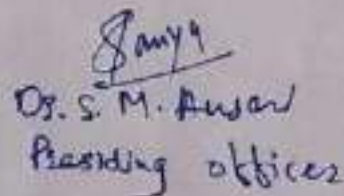 Saniya
Dr. S. M. Ansari
Presiding officer